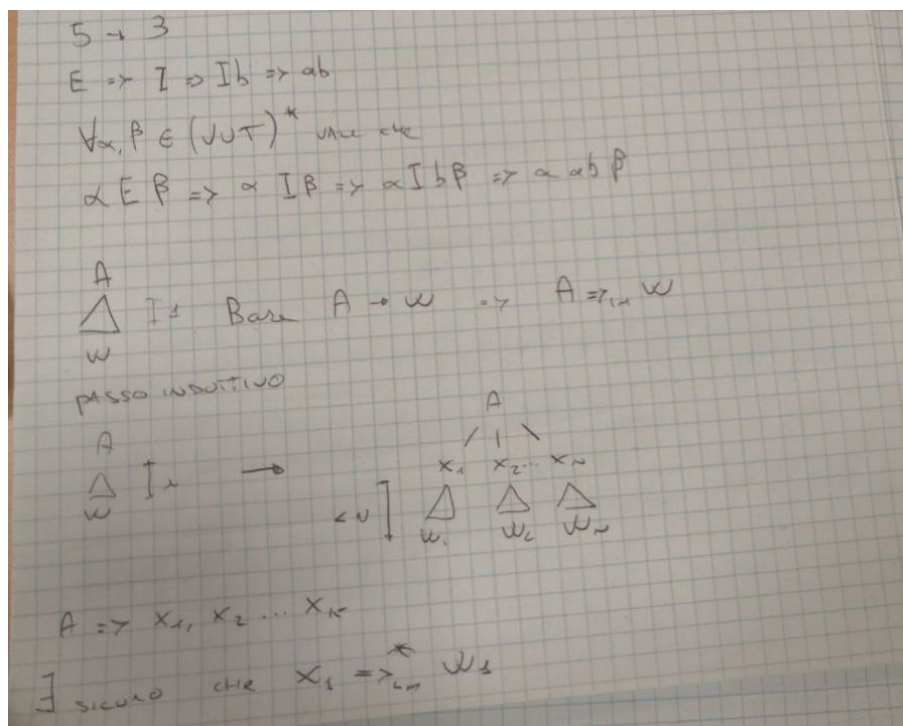 5 → 3
E => I => Ib => ab
∀α, β ∈ (V∪T)* vale che
α E β => α I β => α I b β => α ab β
A
w
I1 Base A → w => A =>lm w
PASSO INDUTTIVO
A
w
A
x1 x2... xn
<N
w1 w2 wn
A => x1, x2 ... xk
∃ sicuro che x1 =>*lm w1